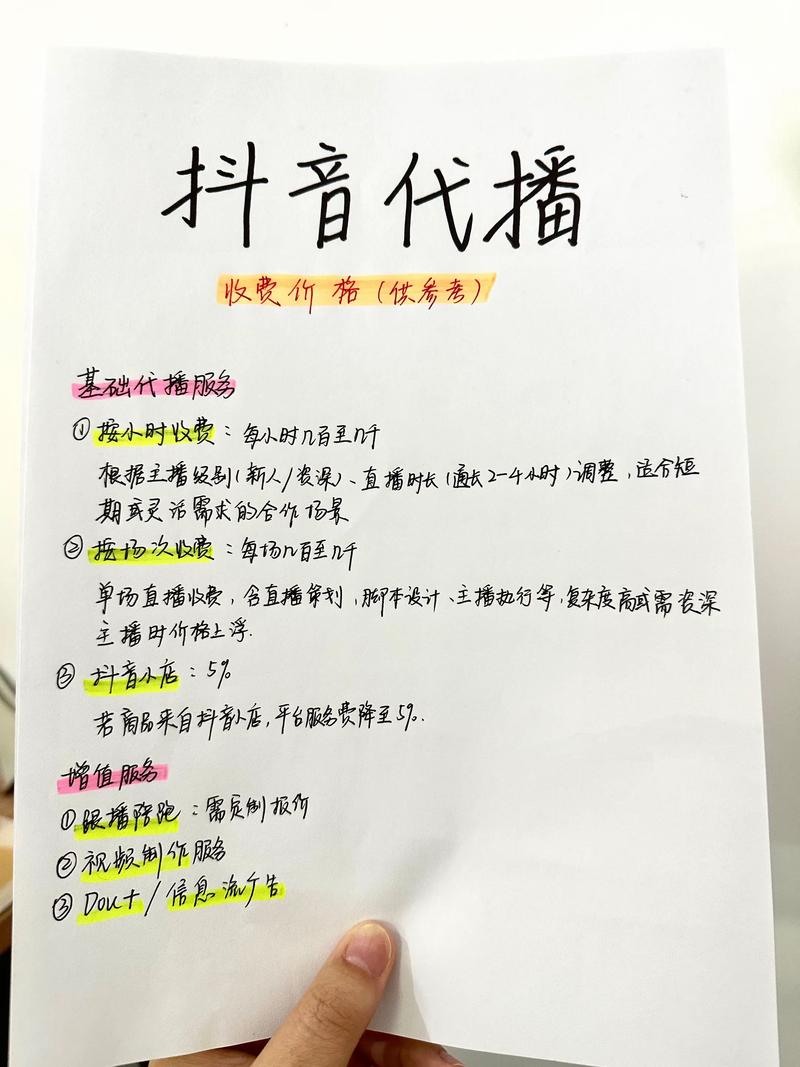 抖音代播
收费价格(供参考)
基础代播服务
①按小时收费:每小时几百至几千
根据主播级别(新人/资深)、直播时长(通长2-4小时)调整,适合短
期或灵活需求的合作场景
②按场次收费:每场几百至几千
单场直播收费,含直播策划,脚本设计、主播执行等,复杂度高或需资深
主播时价格上浮.
③抖音小店:5%
若商品来自抖音小店,平台服务费降至5%.
增值服务
①跟播陪跑:需定制报价
②视频制作服务
③Dou+/信息流广告